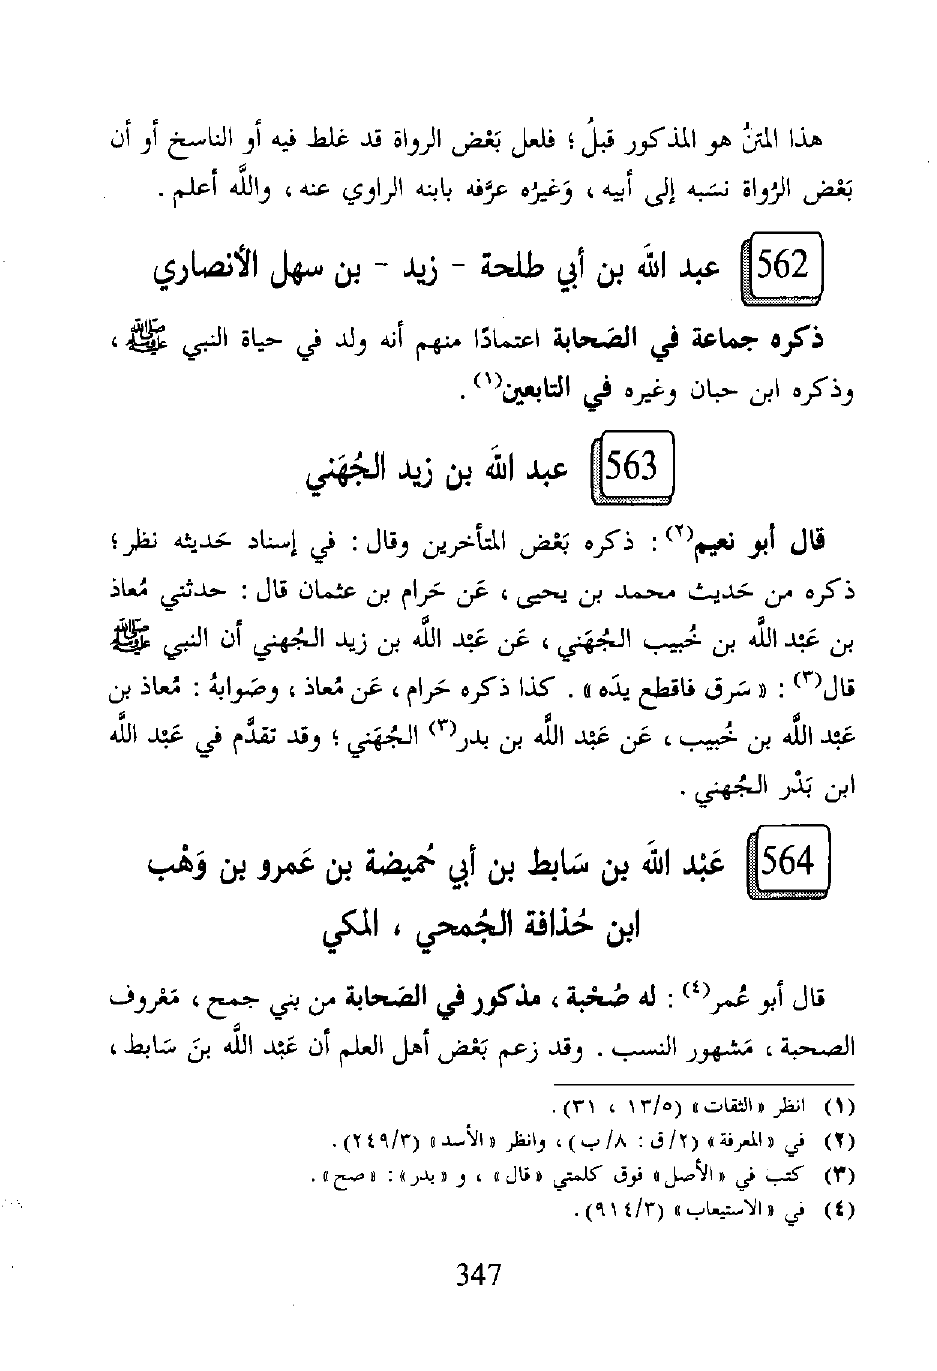 هذا المتنُ هو المذكور قبلُ ؛ فلعل بَعْض الرواة قد غلط فيه أو الناسخ أو أن
بَعْض الرُواة نسَبه إلى أبيه ، وَغيرُه عرَّفه بابنه الراوي عنه ، واللَّه أعلم .
562 عبد الله بن أبي طلحة - زيد - بن سهل الأنصاري
ذكره جماعة في الصَحابة اعتمادًا منهم أنه ولد في حياة النبي ﷺ ،
وذكره ابن حبان وغيره في التابعين(١) .
563 عبد الله بن زيد الجُهَني
قال أبو نعيم(٢) : ذكره بَعْض المتأخرين وقال : في إسناد حَديثه نظر ؛
ذكره من حَديث محمد بن يحيى ، عَن حَرام بن عثمان قال : حدثني مُعاذ
بن عَبْد اللَّه بن خُبيب الجُهَني ، عَن عَبْد اللَّه بن زيد الجُهني أن النبي ﷺ
قال(٣) : « سَرق فاقطع يدَه » . كذا ذكره حَرام ، عَن مُعاذ ، وصَوابهُ : مُعاذ بن
عَبْد اللَّه بن خُبيب ، عَن عَبْد اللَّه بن بدر(٣) الجُهَني ؛ وقد تقدَّم في عَبْد اللَّه
ابن بَدْر الجُهني .
564 عَبْد الله بن سَابط بن أبي حُميضة بن عَمرو بن وَهْب
ابن حُذافة الجُمحي ، المكي
قال أبو عُمر(٤) : له صُحْبة ، مذكور في الصَحابة من بني جمح ، مَعْروف
الصحبة ، مَشهور النسب . وقد زعم بَعْض أهل العلم أن عَبْد اللَّه بنَ سَابط ،
(١) انظر «الثقات» (١٣/٥ ، ٣١).
(٢) في «المعرفة» (٢/ق : ٨/ب) ، وانظر «الأسد» (٢٤٩/٣).
(٣) كتب في «الأصل» فوق كلمتي «قال» ، و «بدر» : «صح».
(٤) في «الاستيعاب» (٩١٤/٣).
347